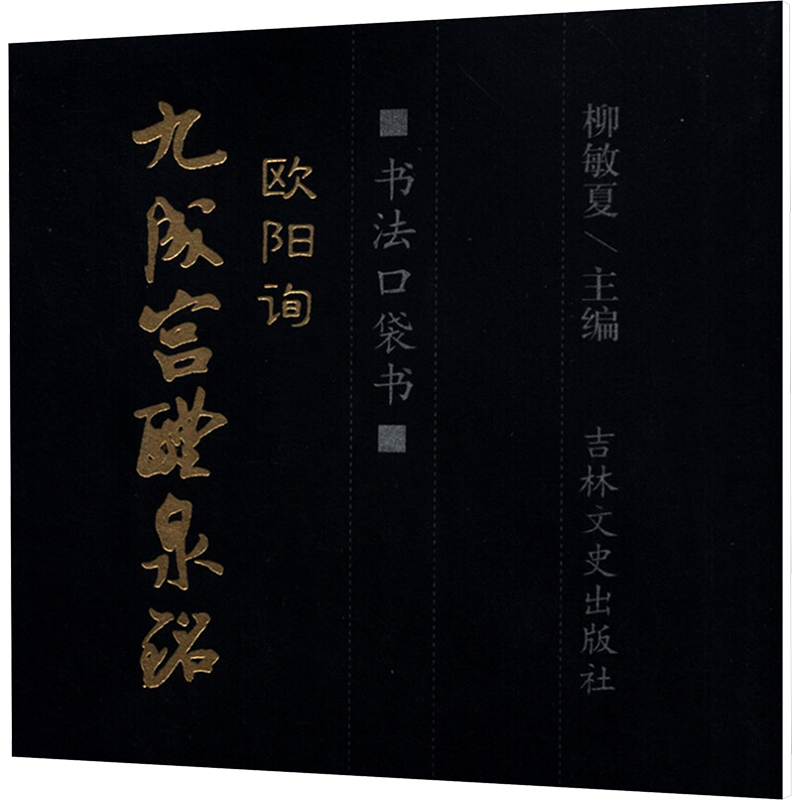 九成宫醴泉铭
欧阳询
■书法口袋书■
柳敏夏/主编
吉林文史出版社